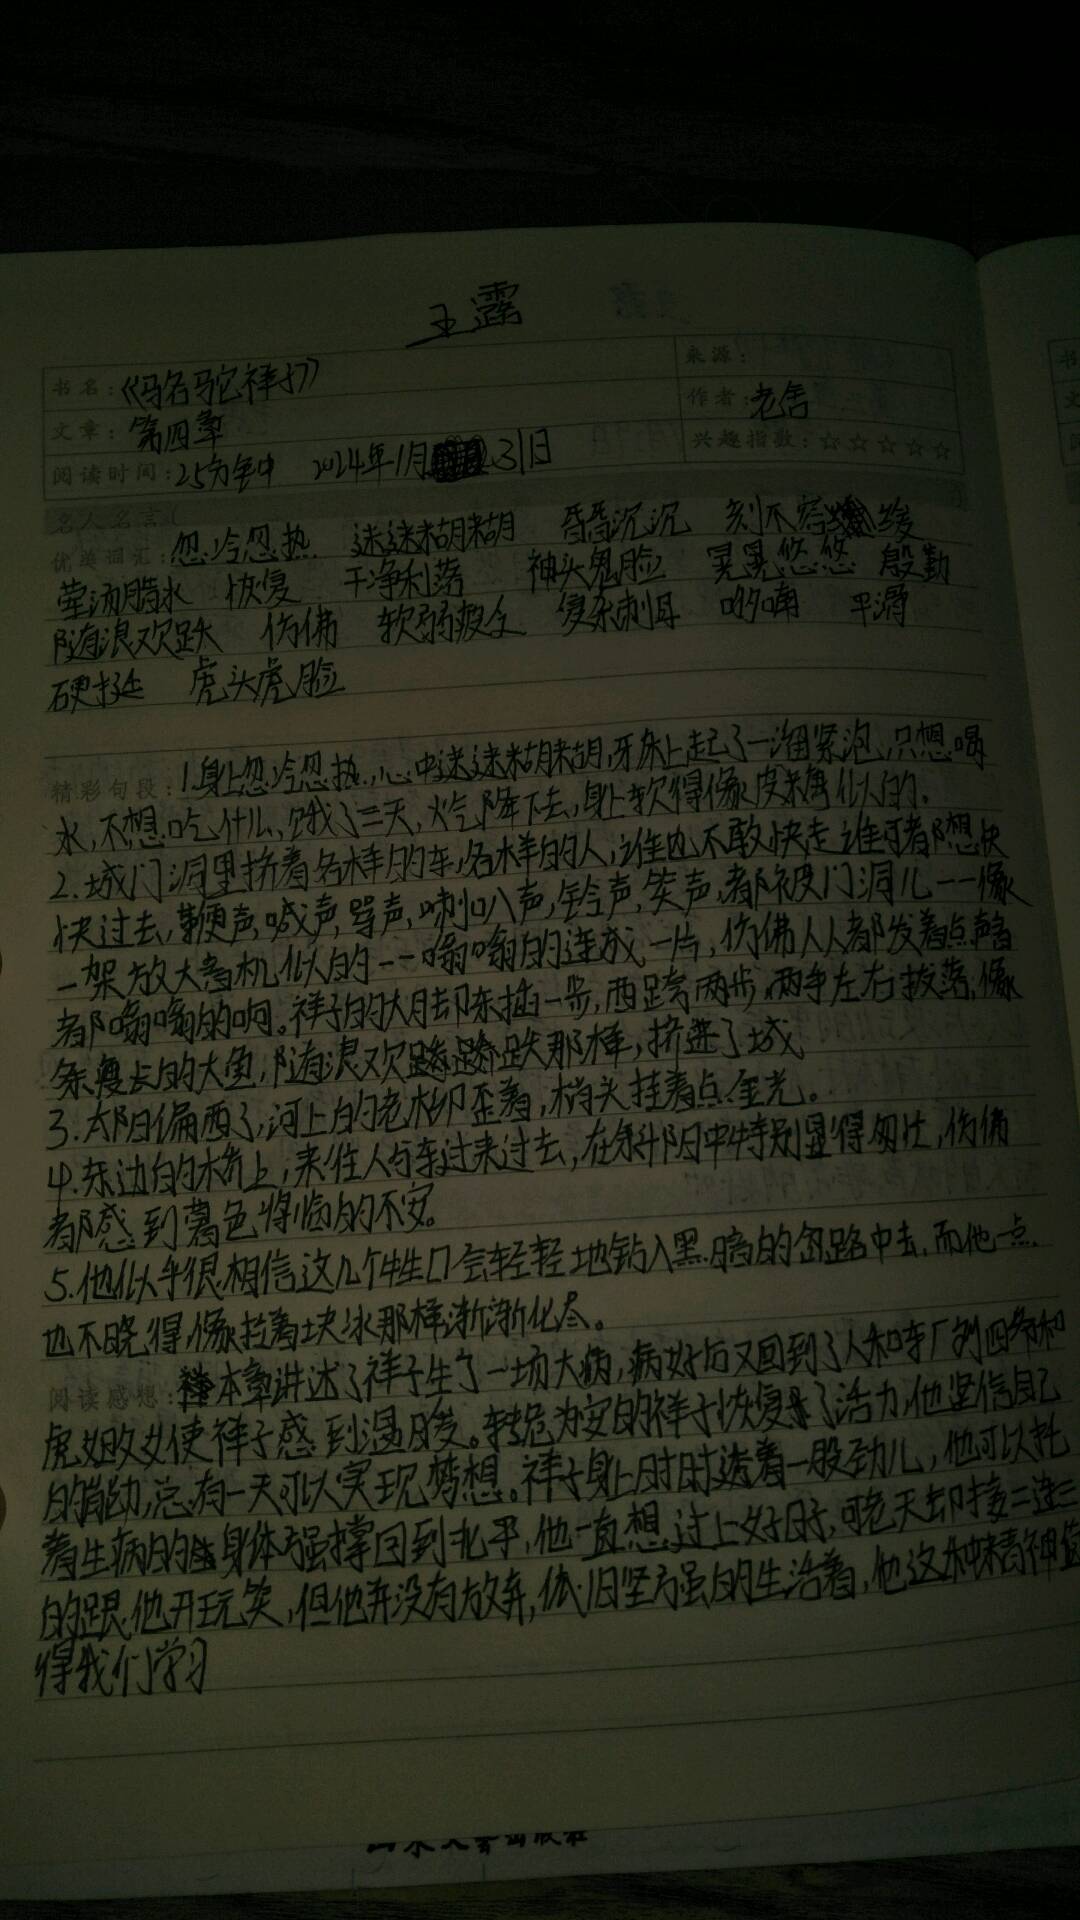 王露
书名:《骆驼祥子》
来源:
作者:老舍
文章:第四章
兴趣指数:☆☆☆☆☆
阅读时间:25分钟 2024年1月31日
名人名言(
优美词汇:忽冷忽热 迷迷糊糊 昏昏沉沉 刻不容缓
茔汤腊水 恢复 干净利落 神头鬼脸 晃晃悠悠 殷勤
随浪欢跃 仿佛 软弱疲乏 复杂刺耳 喃 平滑
硬挺 虎头虎脸
精彩句段:1.身上忽冷忽热,心中迷迷糊糊,牙床上起了一溜紧泡,只想喝
水,不想吃什么,饿了三天,火气降下去,身上软得像皮糖似的。
2.城门洞里挤着各样的车,各样的人,谁也不敢快走谁可都想快
快过去,鞭声,喊声,骂声,喇叭声,铃声,笑声,都被门洞儿--像
一架放大音机似的--嗡嗡的连成一片,仿佛人人都发着点声音
都嗡嗡的响。祥子的大脚东插一步,西跨两步,两手左右拨落,像
条瘦长的大鱼,随浪欢跃那样,挤进了城
3.太阳偏西了,河上的老柳歪着,梢头挂着点金光。
4.东边的木桥上,来往人与车过来过去,在斜阳中特别显得匆忙,仿佛
都感到暮色将临的不安。
5.他似乎很相信这几个牲口会轻轻地钻入黑暗的岔路中去,而他一点
也不晓得,像拉着块冰那样渐渐化尽。
阅读感想:本章讲述了祥子生了一场大病,病好后又回到了人和车厂刘四爷和
虎妞女使祥子感到温暖。转危为安的祥子恢复了活力,他坚信自己
的能力,总有一天可以实现梦想。祥子身上时时透着一股劲儿,他可以托
着生病的身体强撑回到北平,他一直想过上好日子,可老天却接二连三
的跟他开玩笑,但他并没有放弃,依旧坚强的生活着,他这种精神值
得我们学习